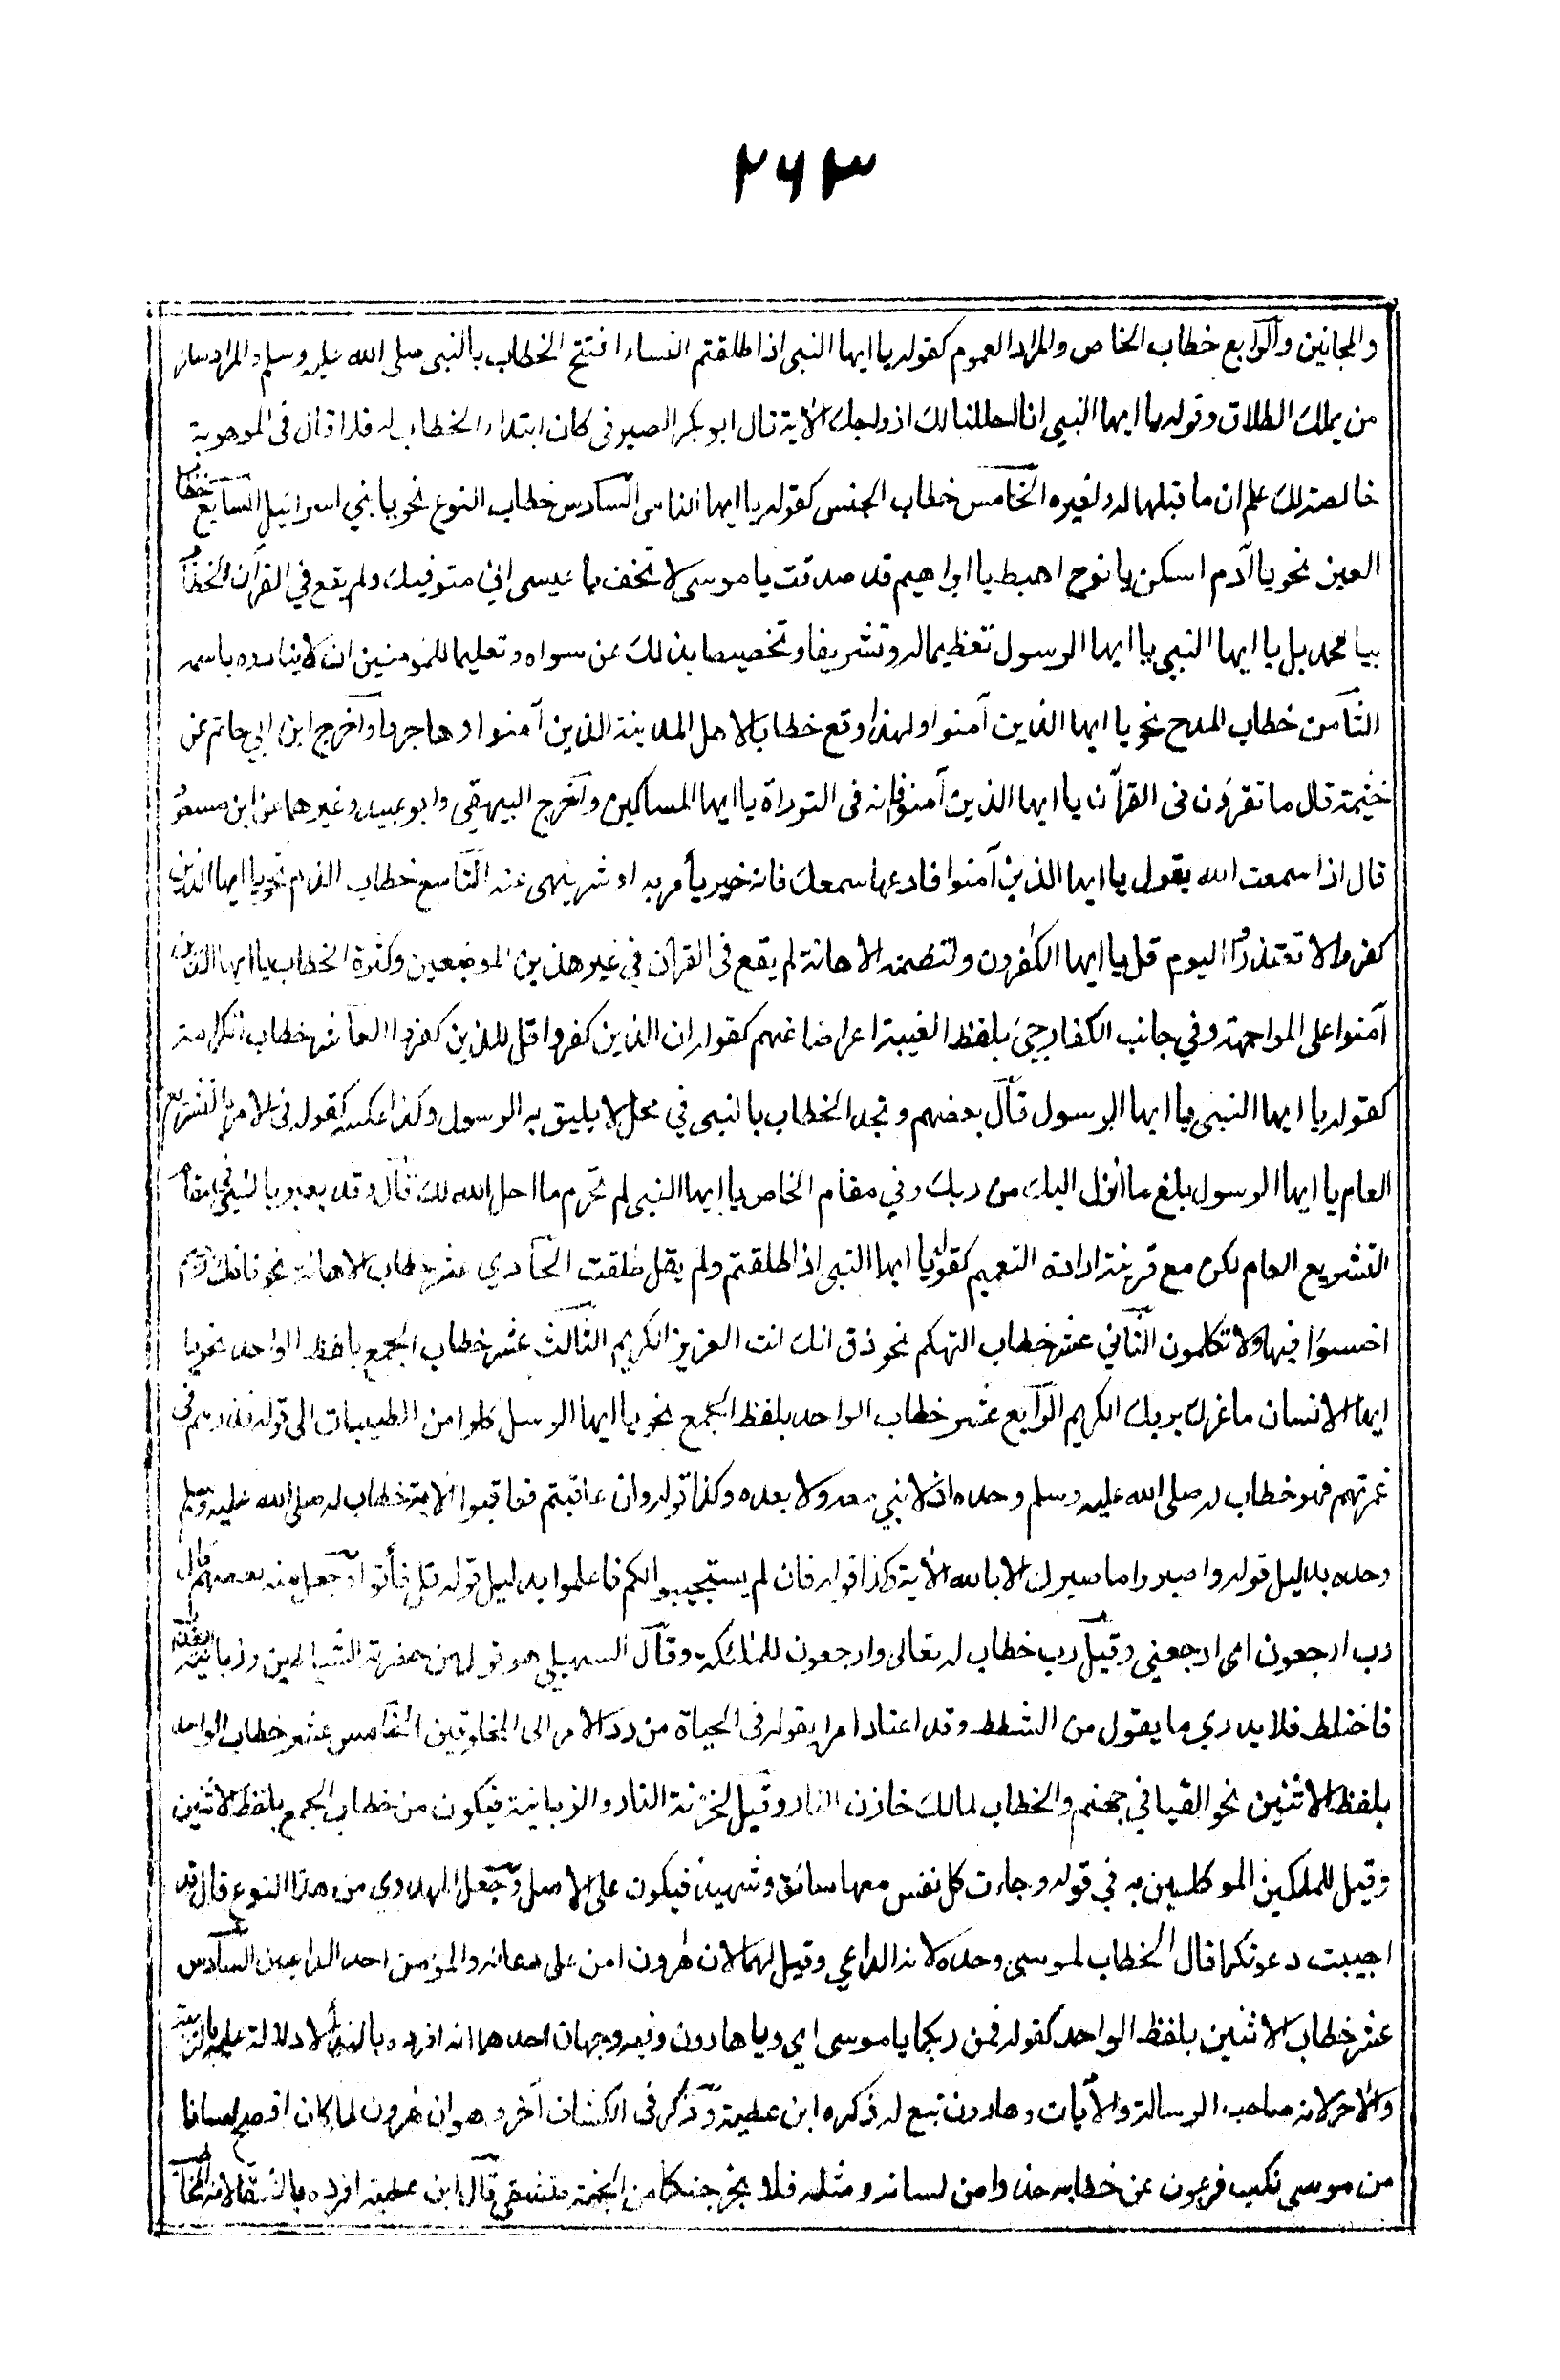 ٢٦٣
والمجانين والرابع خطاب الخاص والمراد العموم كقوله يا ايها النبى اذا طلقتم النساء افتتح الخطاب بالنبى صلى الله عليه وسلم والمراد سائر
من يملك الطلاق وقوله يا ايها النبى انا احللنا لك ازواجك الآية قال ابو بكر الصيرفى كان ابتداء الخطاب له فلما قال فى الموهوبة
خالصة لك علم ان ما قبلها له ولغيره الخامس خطاب الجنس كقوله يا ايها الناس السادس خطاب النوع نحو يا بني اسرائيل السابع خطاب
العين نحو يا آدم اسكن يا نوح اهبط يا ابراهيم قد صدقت يا موسى لا تخف يا عيسى اني متوفيك ولم يقع في القرآن الخطاب
بيا محمد بل يا ايها النبى يا ايها الرسول تعظيما له وتشريفا وتخصيصا بذلك عن سواه وتعليما للمؤمنين ان لا ينادوه باسمه
الثامن خطاب المدح نحو يا ايها الذين آمنوا ولهذا وقع خطابا لاهل المدينة الذين آمنوا وهاجروا وأخرج ابن ابي حاتم عن
خيثمة قال ما تقرؤن فى القرآن يا ايها الذين آمنوا فانه فى التوراة يا ايها المساكين وأخرج البيهقي وابو عبيد وغيرهما عن ابن مسعود
قال اذا سمعت الله يقول يا ايها الذين آمنوا فارعها سمعك فانه خير يأمر به او شر ينهى عنه التاسع خطاب الذم نحو يا ايها الذين
كفروا لا تعتذروا اليوم قل يا ايها الكفرون ولتضمنه الاهانة لم يقع فى القرآن في غير هذين الموضعين وكثرة الخطاب يا ايها الذين
آمنوا على المواجهة وفي جانب الكفار جئ بلفظ الغيبة اعراضا عنهم كقوله ان الذين كفروا قل للذين كفروا العاشر خطاب الكرامة
كقوله يا ايها النبى يا ايها الرسول قال بعضهم ونجد الخطاب بالنبى في محل لا يليق به الرسول وكذا عكسه كقوله في الامر بالتشريع
العام يا ايها الرسول بلغ ما انزل اليك من ربك وفي مقام الخاص يا ايها النبى لم تحرم ما احل الله لك قال وقد يعبر بالنبي في مقام
التشريع العام لكن مع قرينة ارادة التعميم كقوله يا ايها النبى اذا طلقتم ولم يقل طلقت الحادي عشر خطاب الاهانة نحو فانك رجيم
اخسئوا فيها ولا تكلمون الثاني عشر خطاب التهكم نحو ذق انك انت العزيز الكريم الثالث عشر خطاب الجمع بلفظ الواحد نحو يا
ايها الانسان ما غرك بربك الكريم الرابع عشر خطاب الواحد بلفظ الجمع نحو يا ايها الرسل كلوا من الطيبات الى قوله فذرهم في
غمرتهم فهو خطاب له صلى الله عليه وسلم وحده اذ لا نبي معه ولا بعده وكذا قوله وان عاقبتم فعاقبوا الآية خطاب له صلى الله عليه وسلم
وحده بدليل قوله واصبر وما صبرك الا بالله الآية وكذا قوله فان لم يستجيبوا لكم فاعلموا بدليل قوله قل فأتوا وجعل منه بعضهم قال
رب ارجعون اى ارجعني وقيل رب خطاب له تعالى وارجعون للملئكة وقال السهيلي هو قول من حضرته الشياطين وزبانية العذاب
فاختلط فلا يدري ما يقول من الشطط وقد اعتاد امرا يقوله فى الحياة من رد الامر الى المخلوقين الخامس عشر خطاب الواحد
بلفظ الاثنين نحو القيا في جهنم والخطاب لمالك خازن النار وقيل لخزنة النار والزبانية فيكون من خطاب الجمع بلفظ الاثنين
وقيل للملكين الموكلين به في قوله وجاءت كل نفس معها سائق وشهيد فيكون على الاصل وجعل المهدوى من هذا النوع قال قد
اجيبت دعوتكما قال الخطاب لموسى وحده لانه الداعي وقيل لهما لان هٰرون امن على دعائه والمؤمن احد الداعيين السادس
عشر خطاب الاثنين بلفظ الواحد كقوله فمن ربكما يا موسى اي ويا هارون وفيه وجهان احدهما انه افرده بالنداء لادلاله عليه بالتربية
والآخر لانه صاحب الرسالة والآيات وهارون تبع له ذكره ابن عطية وذكر فى الكشاف آخر وهو ان هٰرون لما كان افصح لسانا
من موسى نكب فرعون عن خطابه حذرا من لسانه ومثله فلا يخرجنكما من الجنة فتشقى قال ابن عطية افرده بالشقاء لانه المخاطب